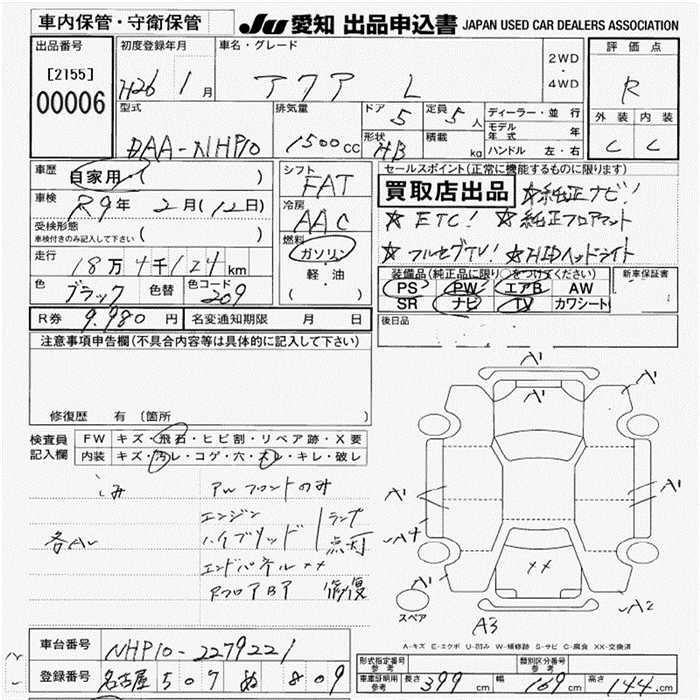 車内保管・守衛保管
JU 愛知 出品申込書 JAPAN USED CAR DEALERS ASSOCIATION
出品番号 [2155] 00006
初度登録年月 H26 1月
車名・グレード アクア L
2WD・4WD
評価点 R
外装 内装
C C
型式 DAA-NHP10
排気量 1500cc
ドア 5
定員 5人
形状 HB
積載 kg
ディーラー・並行
モデル年式 年
ハンドル 左・右
車歴 自家用・( )
車検 R9年 2月(12日)
受検形態
車検付きのみ記入して下さい( )
走行 18万4千124km
色 ブラック 色替 色コード 209
シフト FAT
冷房 AAC
燃料 ガソリン・軽・油( )
セールスポイント(正常に機能するものに限ります)
買取店出品 ☆純正ナビ!
☆ETC! ☆純正フロアマット
☆フルセグTV! ☆HIDヘッドライト
装備品(純正品に限り○をつけてください) 新車保証書
PS PW エアB AW
SR ナビ TV カワシート
後日品
R券 9.980円 名変通知期限 月 日
注意事項申告欄(不具合内容等は具体的に記入して下さい)
修復歴 有 (箇所
検査員記入欄
FW キズ・飛石・ヒビ割・リペア跡・X要
内装 キズ・汚レ・コゲ・穴・スレ・キレ・破レ
しみ PWフロントのみ
エンジン
ハイブリッド ランプ点灯
各A
エンドパネル xx
RフロアBP 修復
A1
A1
A1
A1
A4
XX
スペア
A2
A3
A-キズ E-エクボ U-凹み W-補修跡 S-サビ C-腐食 XX-交換済
車台番号 NHP10-2279221
登録番号 名古屋 507 ぬ 809
形式指定番号 参考
類別区分番号 参考
車庫証明用 参考 長さ 399cm 幅 169cm 高さ 144cm